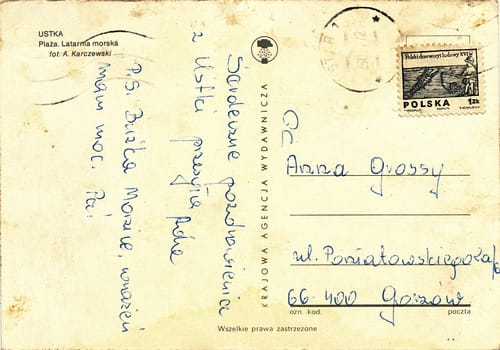 USTKA
Plaża. Latarnia morska
fot. A. Karczewski
Serdeczne pozdrowienia
z Ustki przesyła
P.S. Buźka Marzie, wrażeń
mam moc. Pa!
KRAJOWA AGENCJA WYDAWNICZA
Polski drzeworyt ludowy XVI
POLSKA 1 ZŁ
Anna Grossy
ul. Poniatowskiego
66-400 Gorzów
ozn. kod. poczta
Wszelkie prawa zastrzeżone